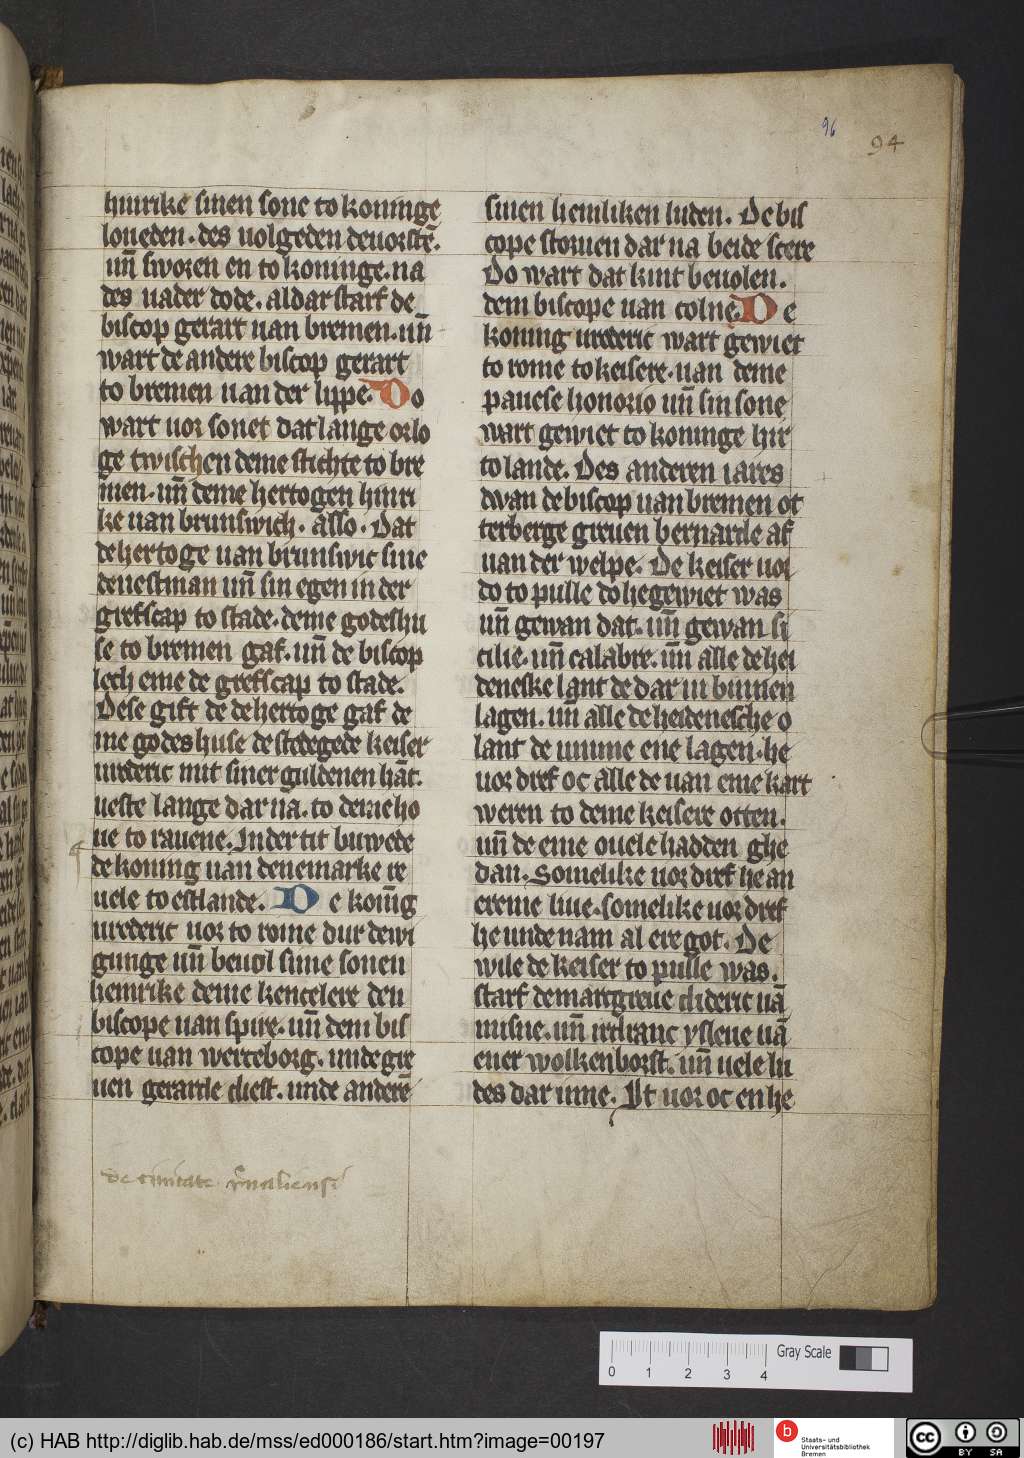 96
94
hinrike sinen sone to koninge
loueden. des uolgeden deuorstē.
uñ sworen en to koninge. na
des uader dode. aldar starf de
biscop gerart uan bremen. uñ
wart de andere biscop gerart
to bremen uan der lippe. Do
wart uor sonet dat lange orlo
ge twischen deme stichte to bre
men. uñ deme hertogen hinri
ke uan brunswich. also. Dat
de hertoge uan brunswic sine
denestman uñ sin egen in der
grefscap to stade. deme godeshu
se to bremen gaf. uñ de biscop
lech eme de grefscap to stade.
Dese gift de de hertoge gaf de
me godeshuse de stedegede keiser
urederic mit siner guldenen hāt.
ueste lange dar na. to deme ho
ue to rauene. In der tit buwede
de koning uan denemarke re
uele to estlande. De konīg
urederic uor to rome dur dewi
gunge uñ beuol sime sonen
heinrike deme kencelere den
biscope uan spire. uñ dem bis
cope uan werceborg. unde gre
uen gerarde diest. unde anderē
de ciuitate
sinen hemliken luden. De bis
cope storuen dar na beide scere
Do wart dat kint beuolen.
dem biscope uan colne. De
koning urederic wart gewiet
to rome to keisere. uan deme
pauese honorio uñ sin sone
wart gewiet to koninge hir
to lande. Des anderen iares
dwan de biscop uan bremen ot
terberge greuen bernarde af
uan der welpe. De keiser uor
do to pulle do he gewiet was
uñ gewan dat. uñ gewan si
cilie. uñ calabre. uñ alle de hei
deneske lant de dar in binnen
lagen. uñ alle de heidenesche o
lant de umme ene lagen. he
uor dref oc alle de uan eme kart
weren to deme keisere otten.
uñ de eme ouele hadden ghe
dan. Somelike uor dref he an
ereme liue. somelike uor dref
he unde nam al ere got. De
wile de keiser to pulle was.
starf de marcgreue dideric uā
misne. uñ irdranc ysleue uā
ener wolkenborst. uñ uele lu
des dar inne. It uor oc en he
0 1 2 3 4
Gray Scale
(c) HAB http://diglib.hab.de/mss/ed000186/start.htm?image=00197
b
Staats- und
Universitätsbibliothek
Bremen
cc
BY SA